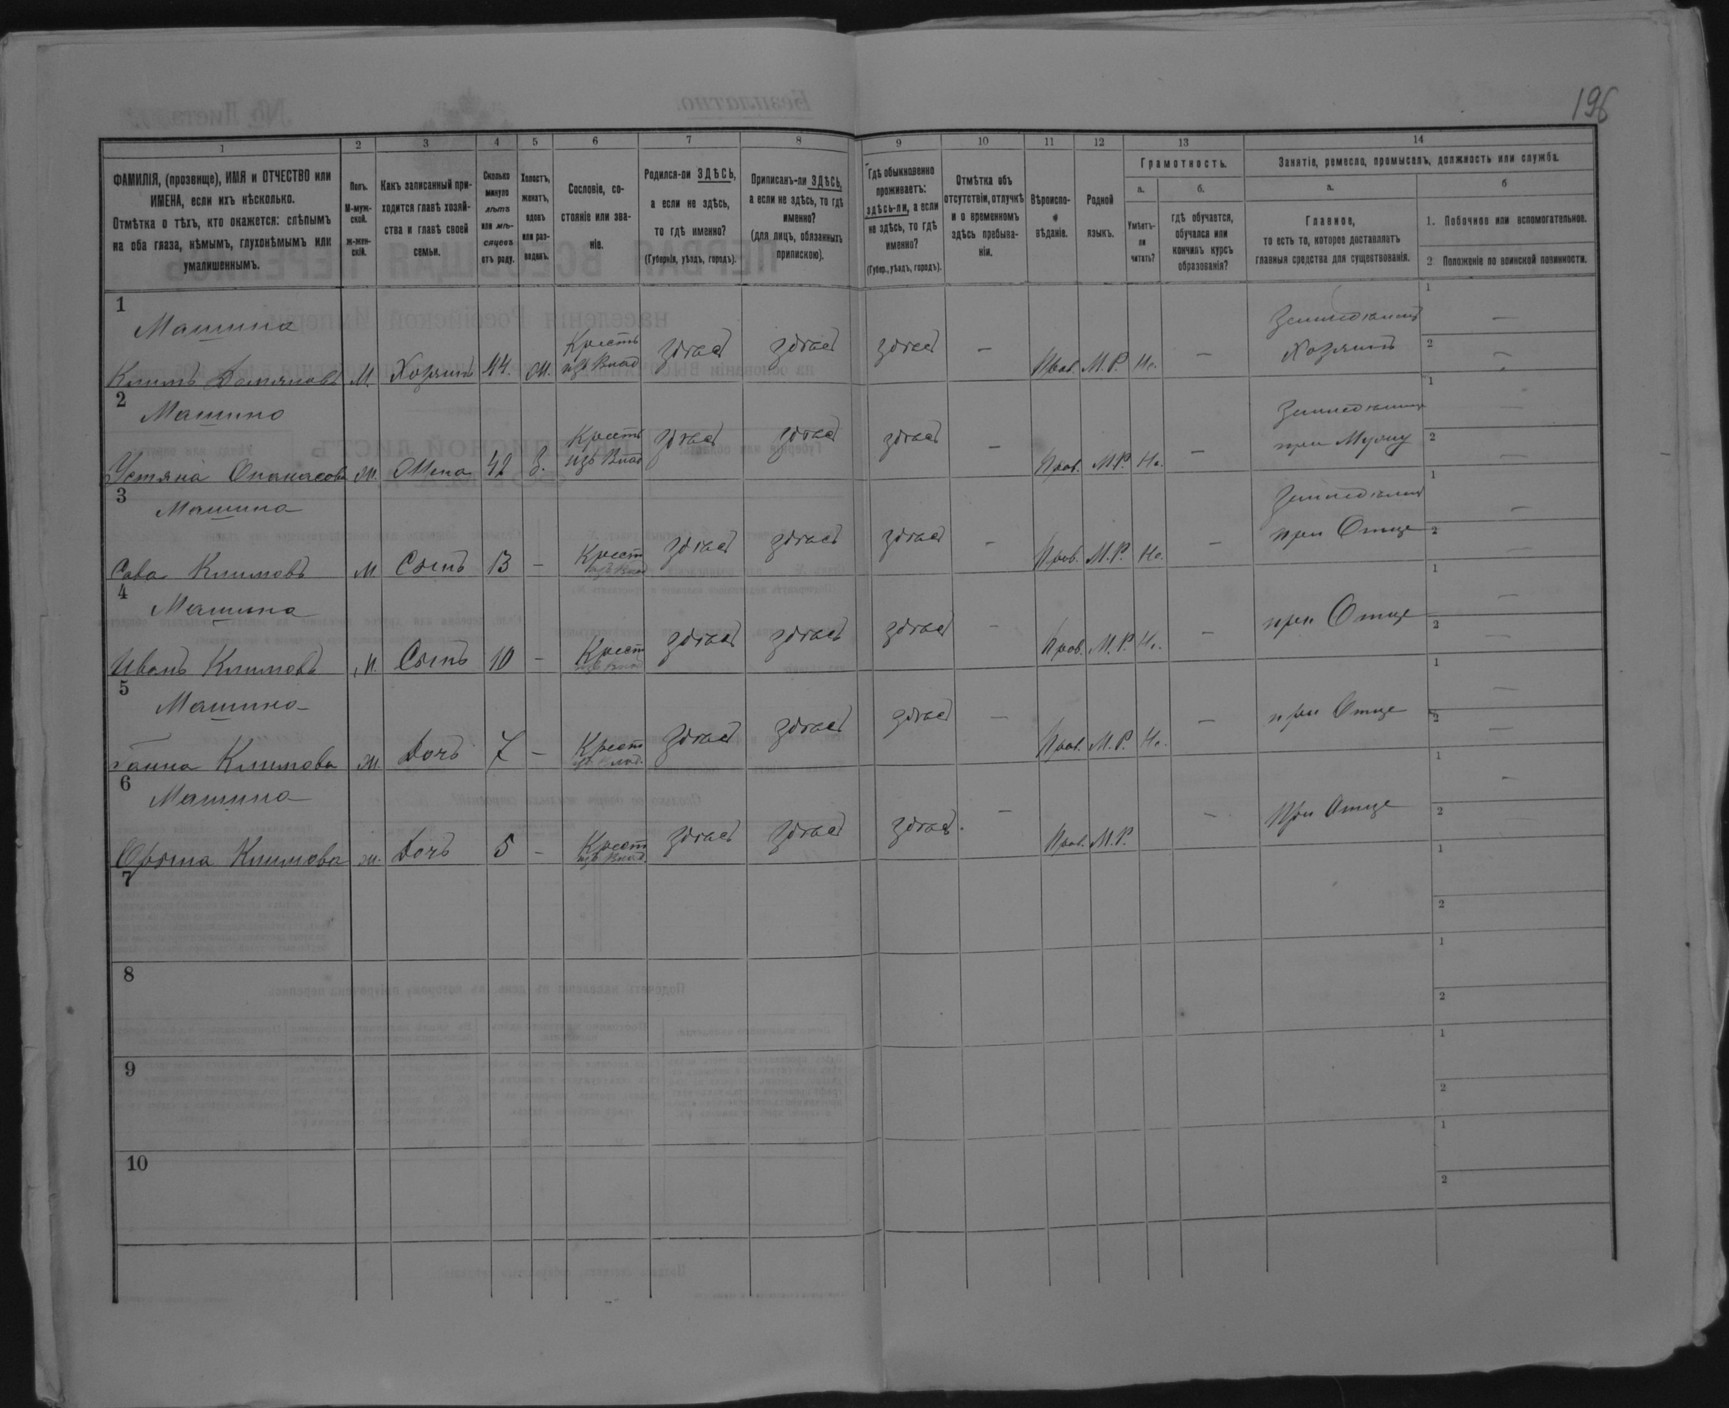 196
1
2
3
4
5
6
7
8
9
10
11
12
13
14
ФАМИЛІЯ, (прозвище), ИМЯ и ОТЧЕСТВО или
ИМЕНА, если ихъ нѣсколько.
Отмѣтка о тѣхъ, кто окажется: слѣпымъ
на оба глаза, нѣмымъ, глухонѣмымъ или
умалишеннымъ.
Полъ.
М-муж-
ской.
Ж-жен-
скій.
Какъ записанный при-
ходится главѣ хозяй-
ства и главѣ своей
семьи.
Сколько
минуло
лѣтъ
или мѣ-
сяцевъ
отъ роду.
Холостъ,
женатъ,
вдовъ
или раз-
веденъ.
Сословіе, со-
стояніе или зва-
ніе.
Родился-ли ЗДѢСЬ,
а если не здѣсь,
то гдѣ именно?
(Губернія, уѣздъ, городъ).
Приписанъ-ли ЗДѢСЬ,
а если не здѣсь, то гдѣ
именно?
(для лицъ, обязанныхъ
припискою).
Гдѣ обыкновенно
проживаетъ:
здѣсь-ли, а если
не здѣсь, то гдѣ
именно?
(Губер., уѣздъ, городъ).
Отмѣтка объ
отсутствіи, отлучкѣ
и о временномъ
здѣсь пребыва-
ніи.
Вѣроиспо-
вѣданіе.
Родной
языкъ.
Грамотность.
а.
б.
Умѣетъ-
ли
читать?
гдѣ обучается,
обучался или
кончилъ курсъ
образованія?
Занятія, ремесло, промыселъ, должность или служба.
а.
б
Главное,
то есть то, которое доставляетъ
главныя средства для существованія.
1. Побочное или вспомогательное.
2 Положеніе по воинской повинности.
1
Машина
Климъ М. Хозяинъ 44.
Крестъ
изъ Влад
здѣсь здѣсь здѣсь — Прав. М.Р. Не. —
Хозяинъ
1 —
2 —
2
Машина
Устяна Опанасова Жена 42
Крестъ
изъ Влад
здѣсь здѣсь здѣсь — Прав. М.Р. Не. —
при Мужу
1 —
2 —
3
Машина
Сава Климовъ М Сынъ 13 —
Крест
изъ Влад
здѣсь здѣсь здѣсь — Прав. М.Р. Не. —
при Отце
1 —
2 —
4
Машина
Иванъ Климовъ М. Сынъ 10 —
Крест
изъ Влад
здѣсь здѣсь здѣсь — Прав. М.Р. Не. —
при Отце
1 —
2 —
5
Машина
Ганна Климова ж. Дочъ 7 —
Крест
изъ Влад.
здѣсь здѣсь здѣсь — Прав. М.Р. Не. —
при Отце
1 —
2 —
6
Машина
Орына Климова ж. Дочъ 5 —
Крест
изъ Влад
здѣсь здѣсь здѣсь. — Прав. М.Р. —
При Отце
1 —
2
7
1
2
8
1
2
9
1
2
10
1
2